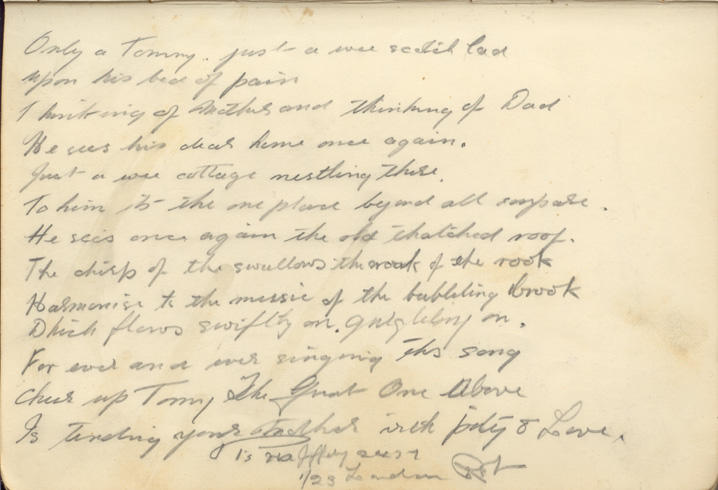 Only a Tommy. just a wee scotch lad
upon his bed of pain
Thinking of Mother and thinking of Dad
He sees his dear home once again.
Just a wee cottage nestling there.
To him its the one place beyond all compare.
He sees once again the old thatched roof.
The chirp of the swallows the croak of the rook
Harmonise to the music of the bubbling brook
Which flows swiftly on. on.
For ever and ever singing this song
Cheer up Tommy the Great One Above
Is tending your Mother with pity & Love.
1/23 London Rgt